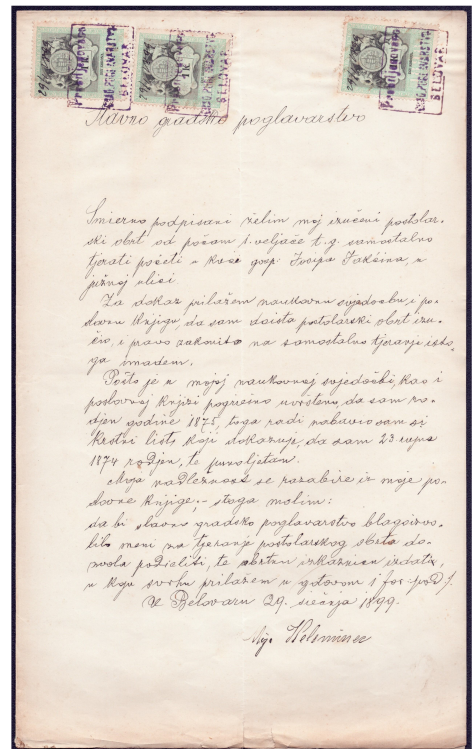 29/1 1899
Preobiljegovano
GRAD. POGLAVARSTVO
BELOVAR
29/1 1899
Preobiljegovano
GRAD. POGLAVARSTVO
BELOVAR
29/1 1899
Preobiljegovano
GRAD. POGLAVARSTVO
BELOVAR
Slavno gradsko poglavarstvo
Smierno podpisani želim moj izučeni postolar-
ski obrt od počam 1. veljače t. g. samostalno
tjerati početi u kući gosp. Josipa Jakšina, u
južnoj ulici
Za dokaz prilažem naukovnu svjedočbu, i po-
slovnu knjigu, da sam doista postolarski obrt izu-
čio, i pravo zakonito na samostalno tjeranje isto-
ga imadem.
Pošto je u mojoj naukovnoj svjedočbi, kao i
poslovnoj knjizi pogrešno uvršteno, da sam ro-
djen godine 1875, toga radi nabavio sam si
krstni list, koji dokazuje, da sam 23 rujna
1874 rodjen, te punoljetan.
Moja nadležnost se razabire iz moje po-
slovne knjige, - stoga molim:
da bi slavno gradsko poglavarstvo blagoizvo-
lilo meni za tjeranje postolarskog obrta do-
zvolu podieliti, te obrtnu izkaznicu izdati,
u koju svrhu prilažem u gotovom 1 for.
U Belovaru 29. siečnja 1899.